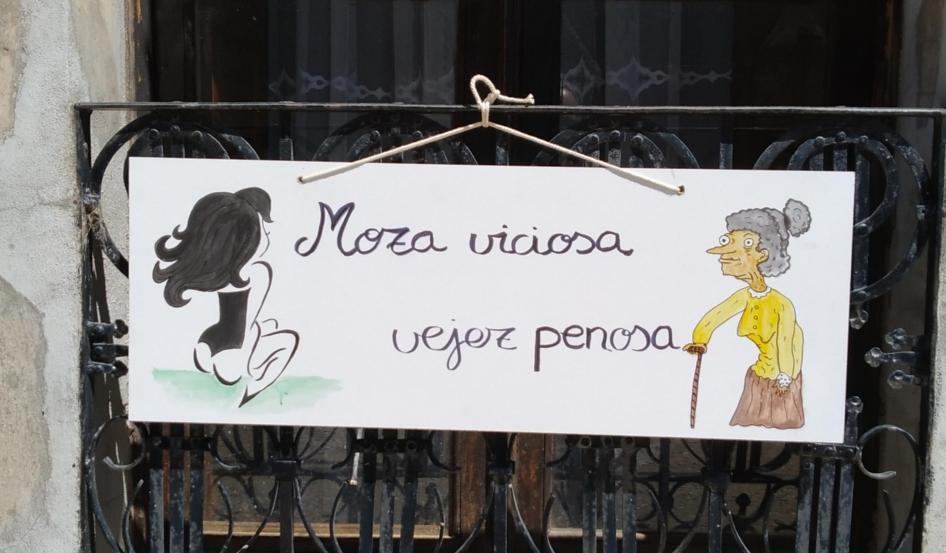 Moza viciosa
vejez penosa.